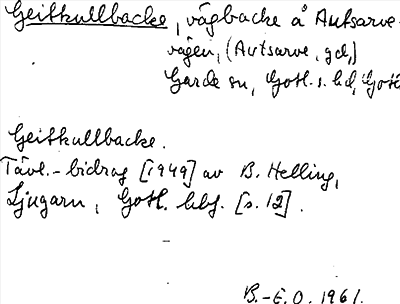 Geitkullbacke, vägbacke å Autsarve-
vägen, (Autsarve, gd,)
Garde sn, Gotl. s. hd, Gotl
Geitkullbacke.
Tävl.-bidrag [1949] av B. Helling,
Ljugarn, Gotl. hbf. [s. 12].
B.-E.O. 1961.